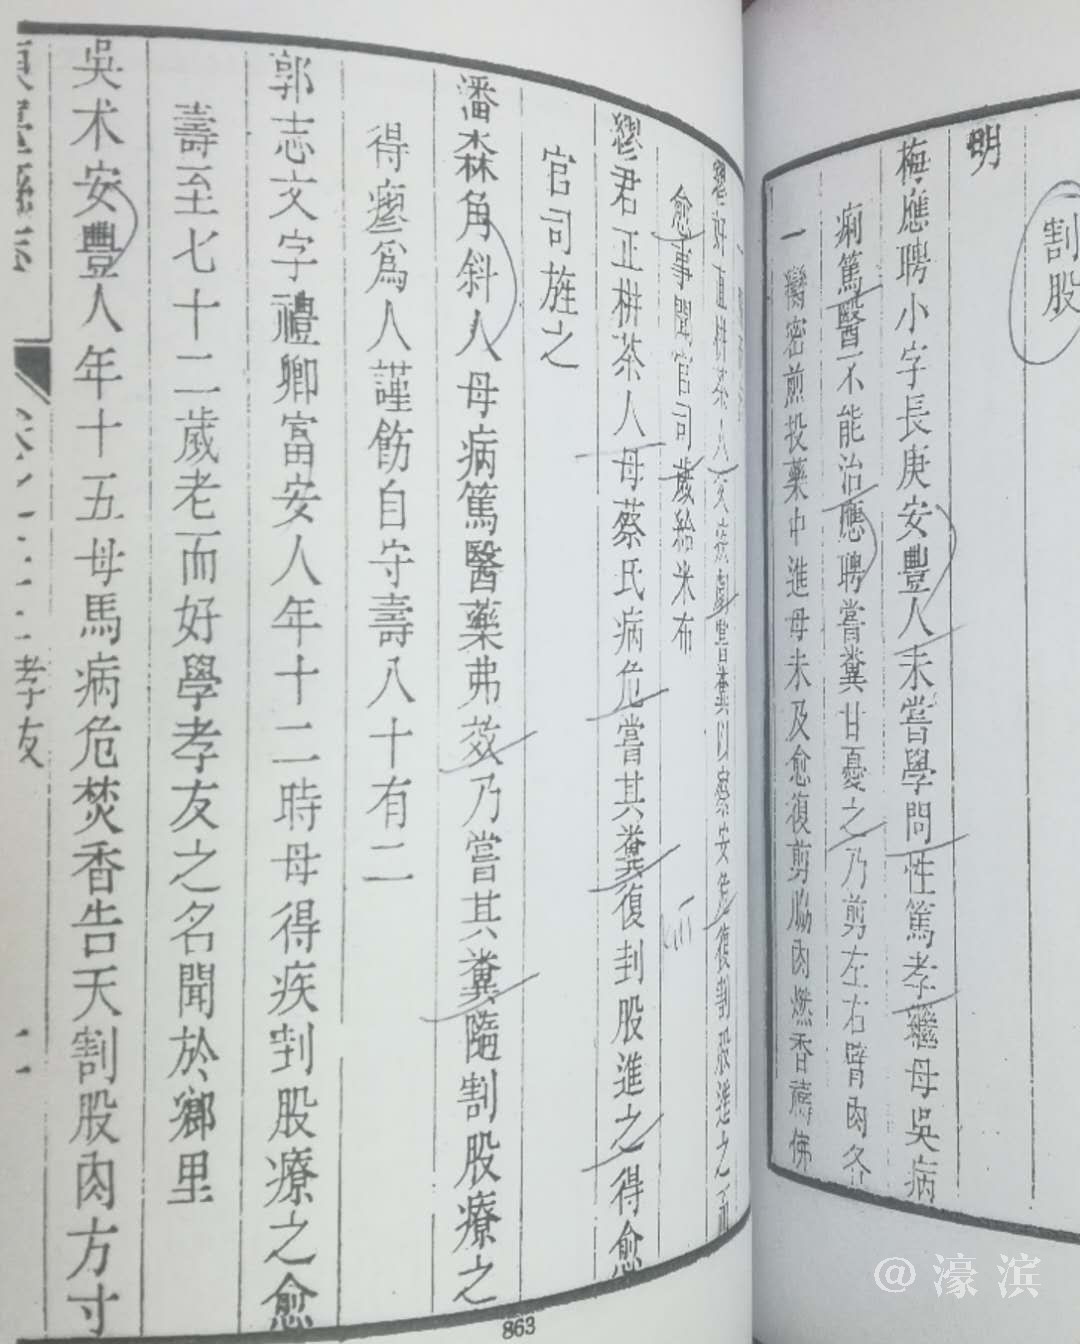 割股
明
梅應聘小字長庚安豐人未嘗學問性篤孝繼母吳病
痢篤醫不能治應聘嘗糞甘憂之乃剪左右臂肉各
一臠密煎投藥中進母未及愈復剪脇肉燃香禱佛
好直栟茶人父病劇嘗糞以察安危復割股進之而
愈事聞官司歲給米布
繆君正栟茶人母蔡氏病危嘗其糞復刲股進之得愈
官司旌之
潘森角斜人母病篤醫藥弗效乃嘗其糞隨割股療之
得瘳爲人謹飭自守壽八十有二
郭志文字禮卿富安人年十二時母得疾刲股療之愈
壽至七十二歲老而好學孝友之名聞於鄉里
吳术安豐人年十五母馬病危焚香告天割股肉方寸
孝友
863
@濠滨